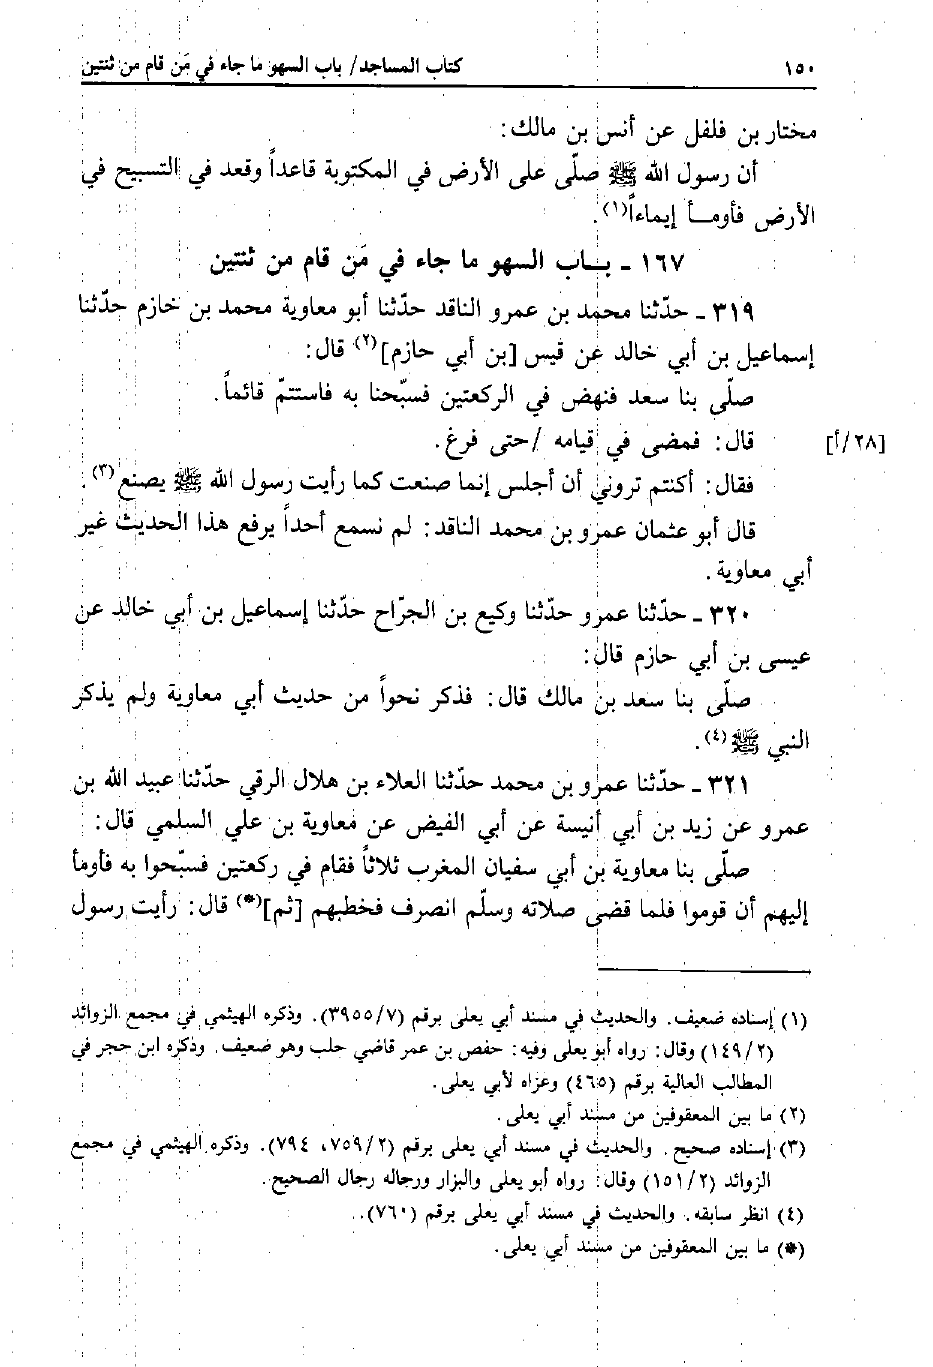 ١٥٠ كتاب المساجد/ باب السهو ما جاء في مَن قام من ثنتين
مختار بن فلفل عن أنس بن مالك:
أن رسول الله ﷺ صلّى على الأرض في المكتوبة قاعداً وقعد في التسبيح في
الأرض فأومأ إيماءاً(١).
١٦٧ ـ بـاب السهو ما جاء في مَن قام من ثنتين
٣١٩ ـ حدّثنا محمد بن عمرو الناقد حدّثنا أبو معاوية محمد بن خازم حدّثنا
إسماعيل بن أبي خالد عن قيس [بن أبي حازم](٢) قال:
صلّى بنا سعد فنهض في الركعتين فسبّحنا به فاستتمّ قائماً.
قال: فمضى في قيامه /حتى فرغ. [٢٨/أ]
فقال: أكنتم تروني أن أجلس إنما صنعت كما رأيت رسول الله ﷺ يصنع(٣).
قال أبو عثمان عمرو بن محمد الناقد: لم نسمع أحداً يرفع هذا الحديث غير
أبي معاوية.
٣٢٠ ـ حدّثنا عمرو حدّثنا وكيع بن الجرّاح حدّثنا إسماعيل بن أبي خالد عن
عيسى بن أبي حازم قال:
صلّى بنا سعد بن مالك قال: فذكر نحواً من حديث أبي معاوية ولم يذكر
النبي ﷺ(٤).
٣٢١ ـ حدّثنا عمرو بن محمد حدّثنا العلاء بن هلال الرقي حدّثنا عبيد الله بن
عمرو عن زيد بن أبي أنيسة عن أبي الفيض عن معاوية بن علي السلمي قال:
صلّى بنا معاوية بن أبي سفيان المغرب ثلاثاً فقام في ركعتين فسبّحوا به فأومأ
إليهم أن قوموا فلما قضى صلاته وسلّم انصرف فخطبهم [ثم](*) قال: رأيت رسول
(١) إسناده ضعيف. والحديث في مسند أبي يعلى برقم (٣٩٥٥/٧). وذكره الهيثمي في مجمع الزوائد
(١٤٩/٢) وقال: رواه أبو يعلى وفيه: حفص بن عمر قاضي حلب وهو ضعيف. وذكره ابن حجر في
المطالب العالية برقم (٤٦٥) وعزاه لأبي يعلى.
(٢) ما بين المعقوفين من مسند أبي يعلى.
(٣) إسناده صحيح. والحديث في مسند أبي يعلى برقم (٧٥٩/٢، ٧٩٤). وذكره الهيثمي في مجمع
الزوائد (١٥١/٢) وقال: رواه أبو يعلى والبزار ورجاله رجال الصحيح.
(٤) انظر سابقه. والحديث في مسند أبي يعلى برقم (٧٦٠).
(*) ما بين المعقوفين من مسند أبي يعلى.